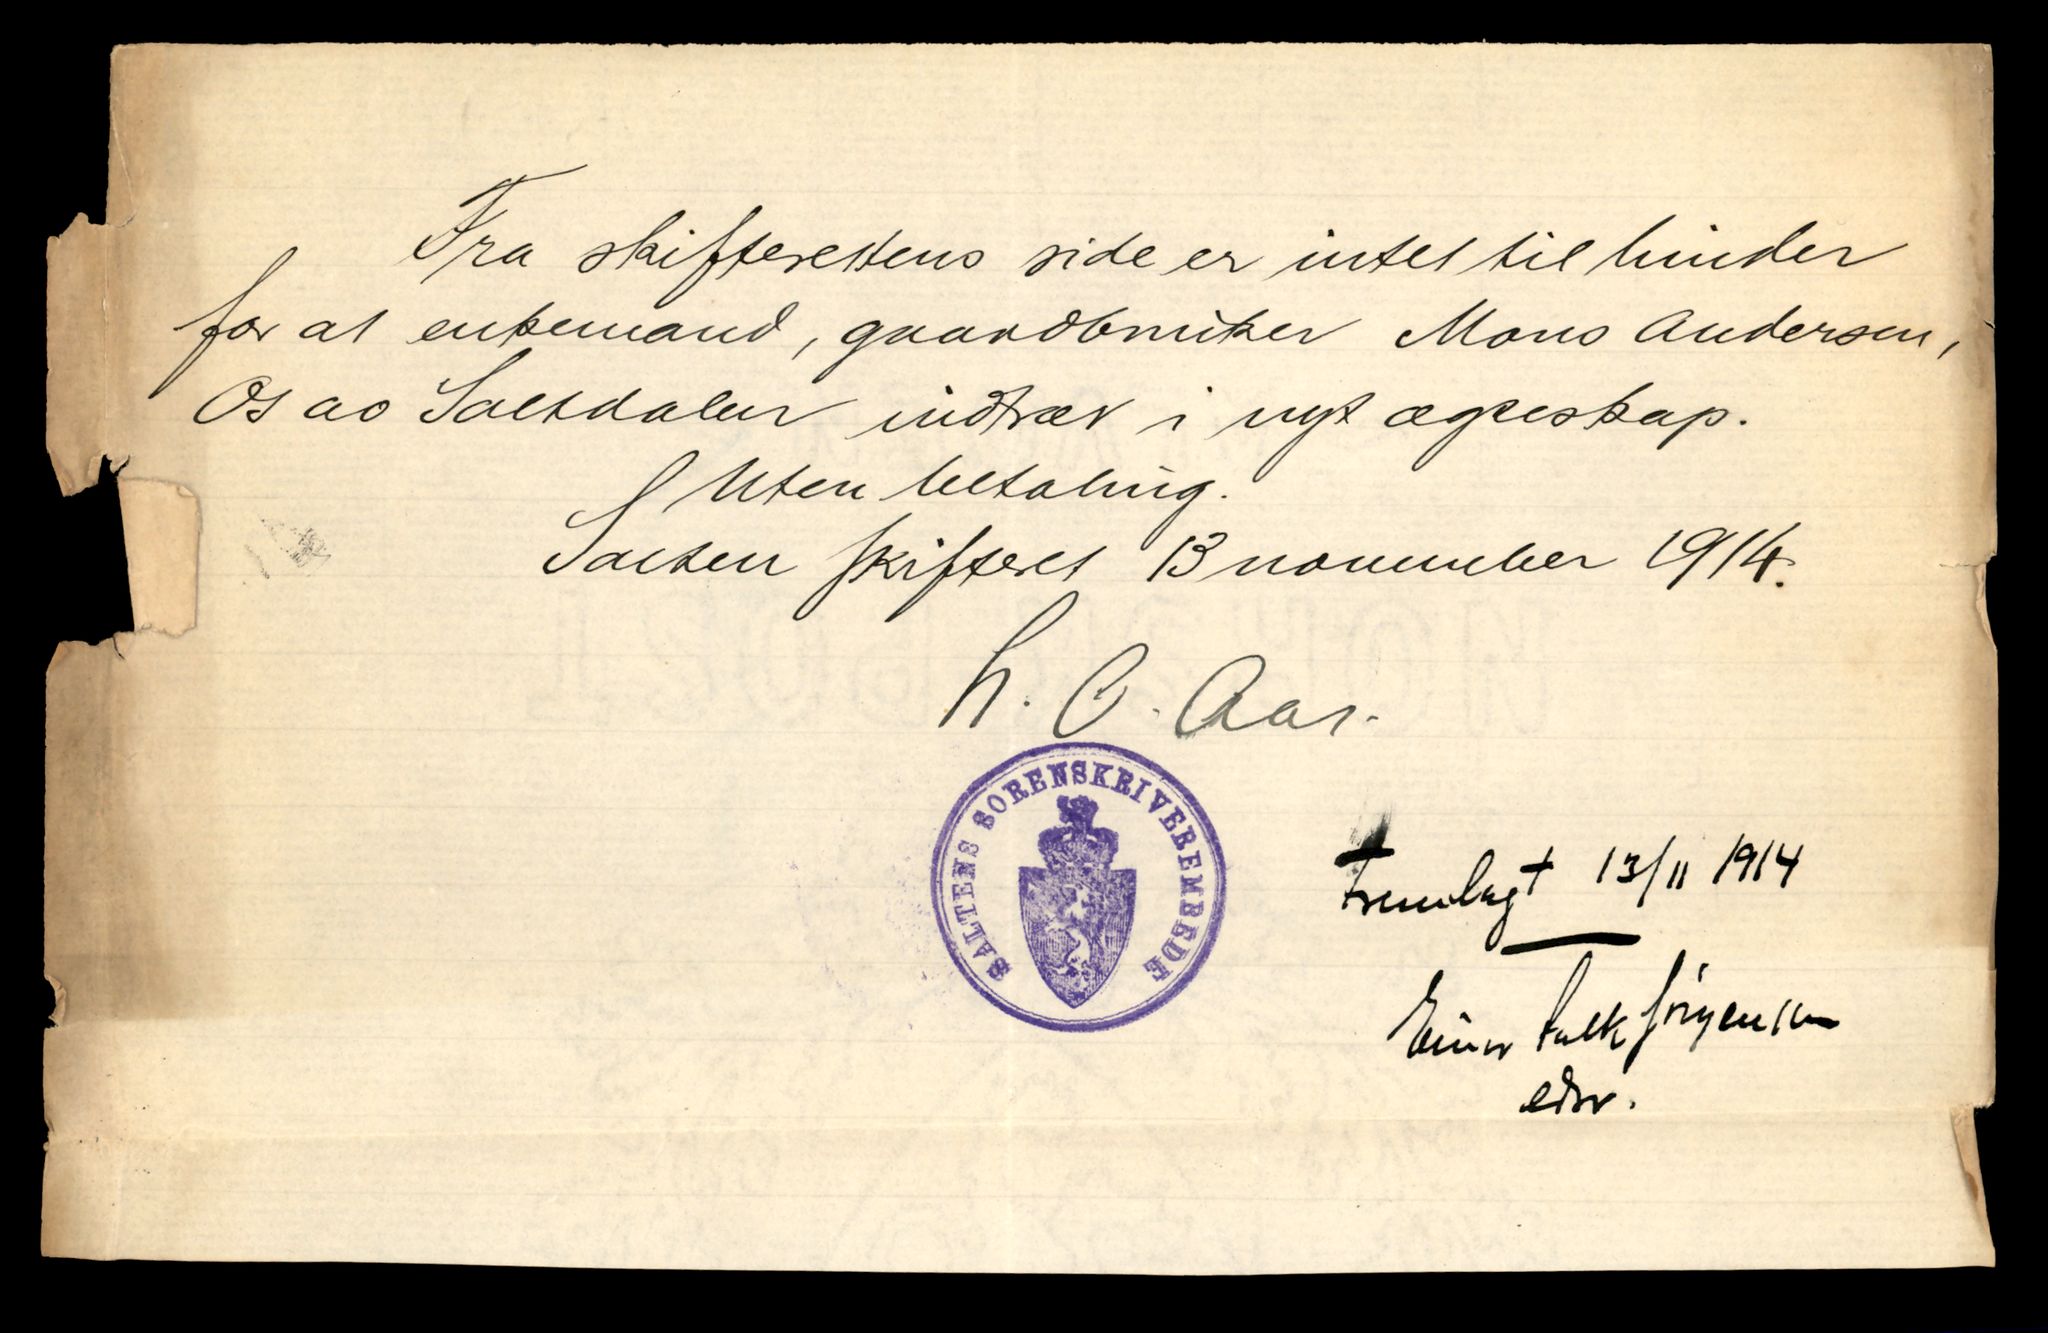 Fra skifterettens side er intet til hinder
for at enkemand, gaardbruker Mons Andersen,
Os av Saltdalen indtræv i nyt ægteskap.
Uten betaling.
Salten skifteret 13 november 1914.
h. O. Aas.
SALTENS SORENSKRIVEREMBEDE
Fremlagt 13/11 1914
Einar Falk Jörgensen
edsv.